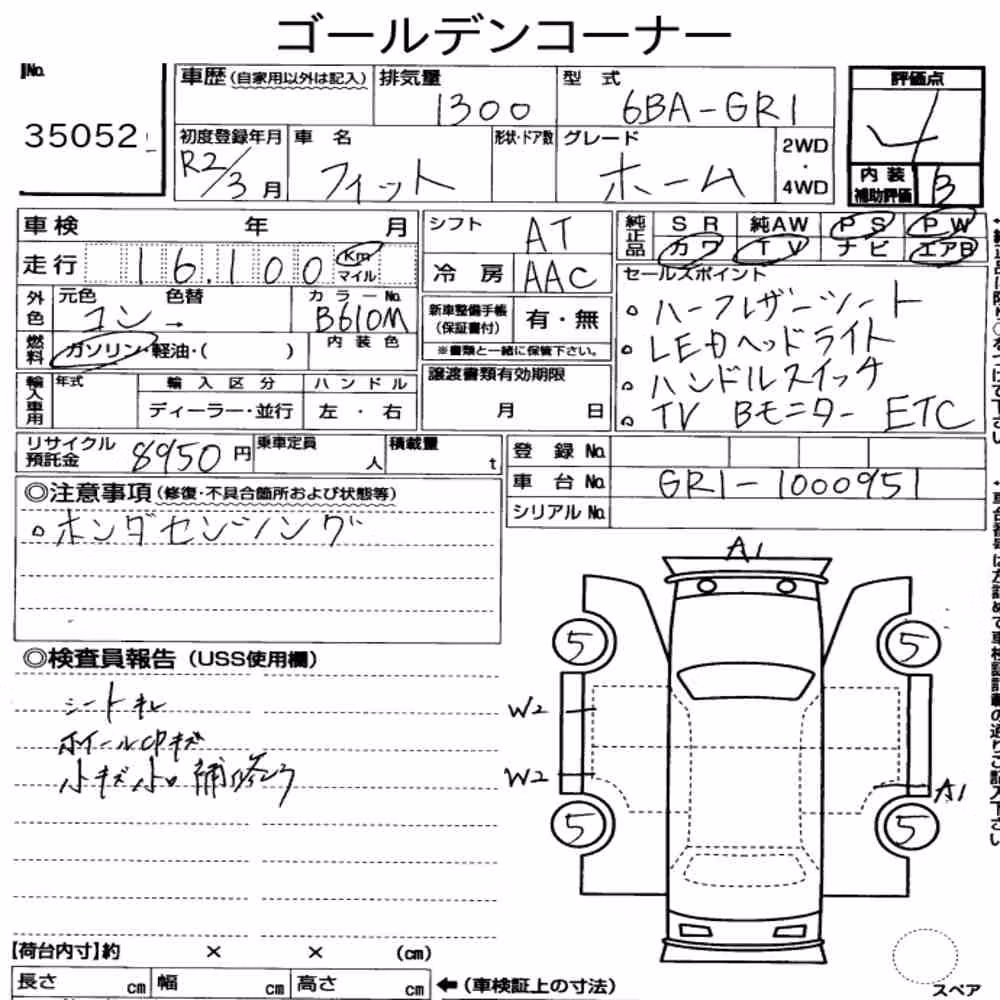 ゴールデンコーナー
No.
35052
車歴(自家用以外は記入)
排気量 1300
型 式 6BA-GR1
評価点 4
初度登録年月 R2/3月
車 名 フィット
形状・ドア数
グレード ホーム
2WD・4WD
内装補助評価 B
車検 年 月
シフト AT
純正品 SR 純AW PS PW
カワ TV ナビ エアB
走行 16,100 Km マイル
冷 房 AAC
セールスポイント
外色 元色 コン→ 色替
カラーNo. B610M
新車整備手帳(保証書付) 有・無
※書類と一緒に保管下さい。
燃料 ガソリン・軽油・( )
内装色
。ハーフレザーシート
。LEDヘッドライト
。ハンドルスイッチ
。TV Bモニター ETC
輸入車用 年式 輸入区分 ハンドル
ディーラー・並行 左・右
譲渡書類有効期限
月 日
リサイクル預託金 8950円
乗車定員 人
積載量 t
登 録 No.
車 台 No. GR1-1000951
シリアル No.
◎注意事項(修復・不具合箇所および状態等)
。ホンダセンシング
◎検査員報告(USS使用欄)
シートキレ
ホイールCPキズ
小キズ小凹 補修
A1
5 5
W2
W2
A1
5 5
【荷台内寸】約 × × (cm)
長さ cm 幅 cm 高さ cm ←(車検証上の寸法)
スペア